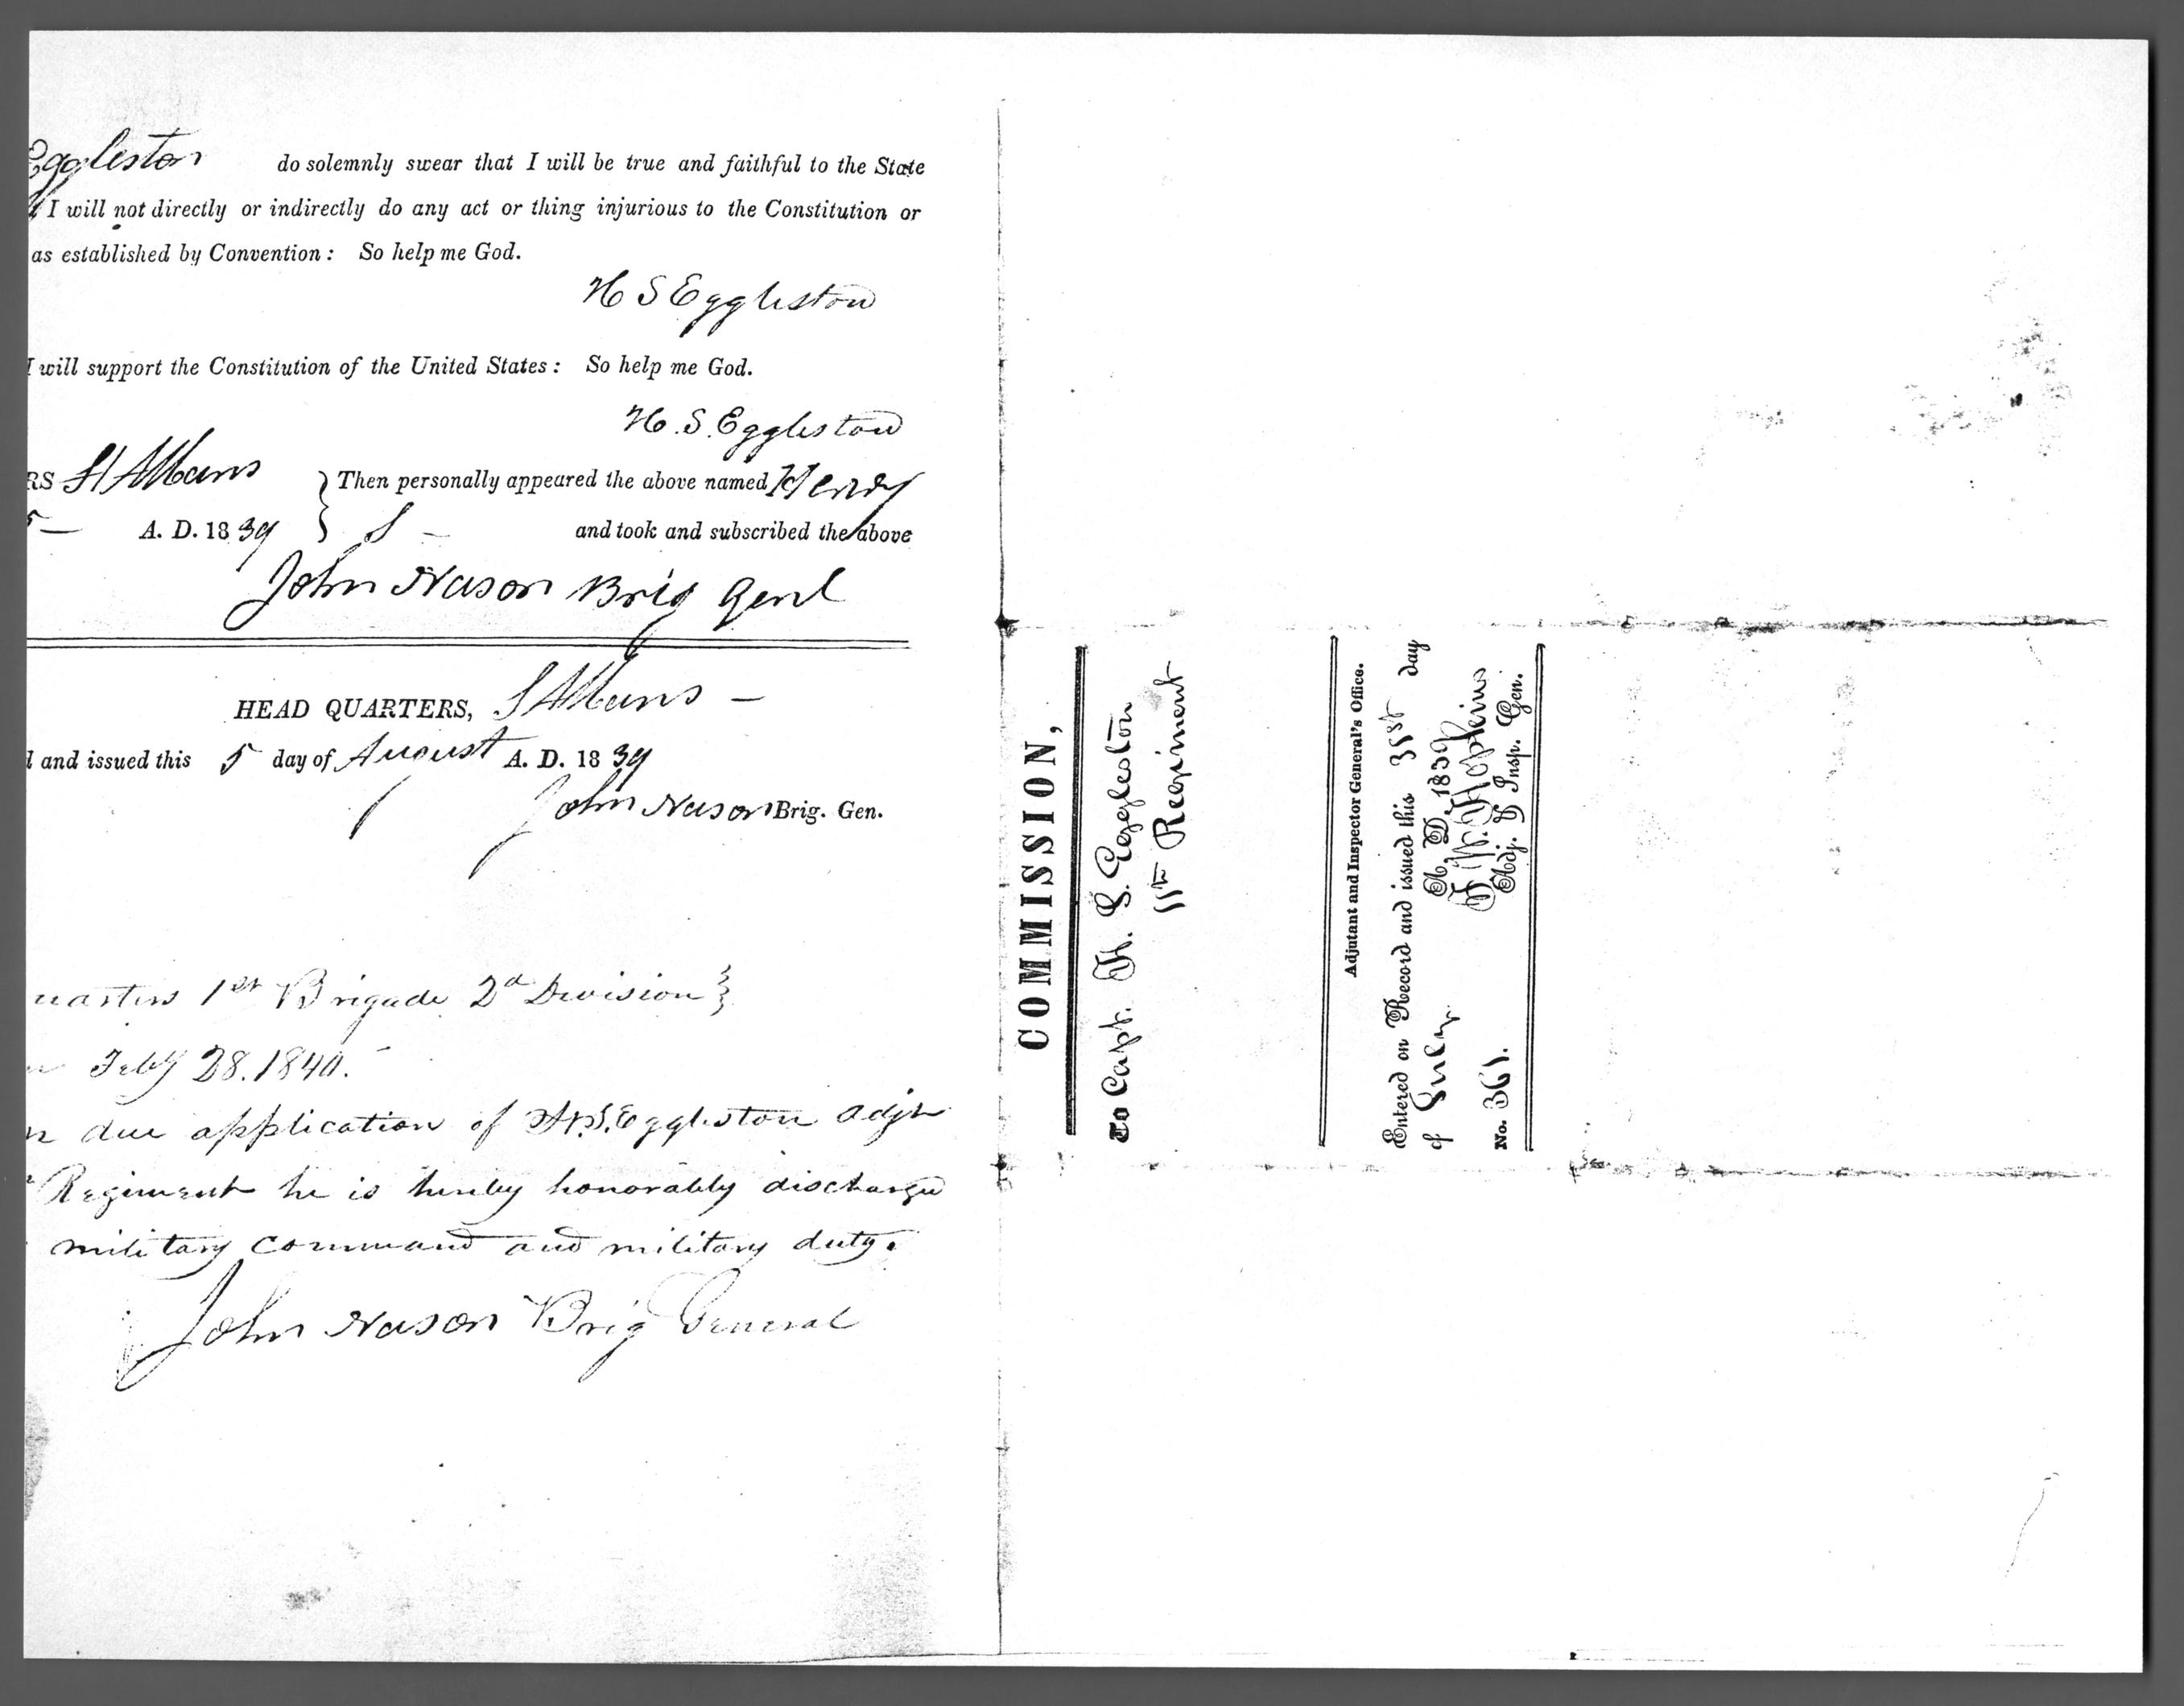 Eggleston do solemnly swear that I will be true and faithful to the State
I will not directly or indirectly do any act or thing injurious to the Constitution or
as established by Convention: So help me God.
H S Eggleston
I will support the Constitution of the United States: So help me God.
H. S. Eggleston
RS St Albans } Then personally appeared the above named Henry
5 — A. D. 18 39 } S — and took and subscribed the above
John Nason Brig Genl
HEAD QUARTERS, St Albans —
d and issued this 5 day of August A. D. 18 39
John Nason Brig. Gen.
uarters 1st Brigade 2d Division }
Feby 28. 1840.
n due application of H.S. Eggleston Adjt
Regiment he is hereby honorably discharged
military command and military duty.
John Nason Brig General
COMMISSION,
To Capt. H. S. Eggleston
11th Regiment
Adjutant and Inspector General's Office.
Entered on Record and issued this 31st day
of July A. D. 1839
F. W. Hopkins
No. 361. Adj. & Insp. Gen.